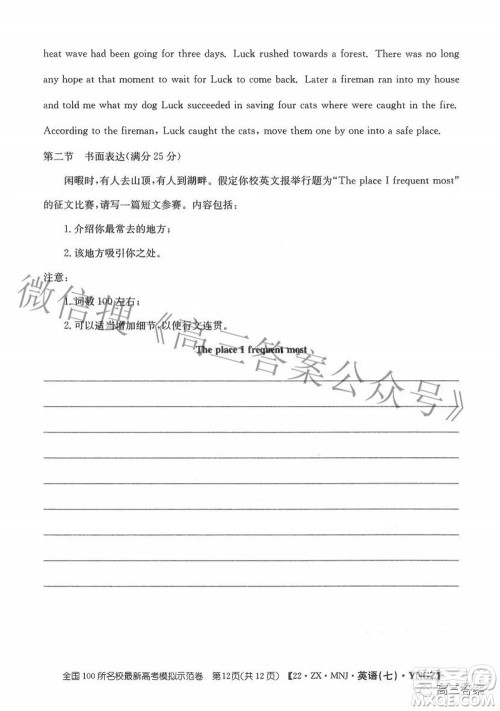 heat wave had been going for three days. Luck rushed towards a forest. There was no long
any hope at that moment to wait for Luck to come back. Later a fireman ran into my house
and told me what my dog Luck succeeded in saving four cats where were caught in the fire.
According to the fireman, Luck caught the cats, move them one by one into a safe place.
第二节　书面表达(满分25分)
闲暇时,有人去山顶,有人到湖畔。假定你校英文报举行题为“The place I frequent most”
的征文比赛,请写一篇短文参赛。内容包括:
1.介绍你最常去的地方;
2.该地方吸引你之处。
注意:
1.词数100左右;
2.可以适当增加细节,以使行文连贯。
The place I frequent most
微信搜《高三答案公众号》
全国100所名校最新高考模拟示范卷　第12页(共12页)　【22·ZX·MNJ·英语(七)·YNGZ】
高三答案